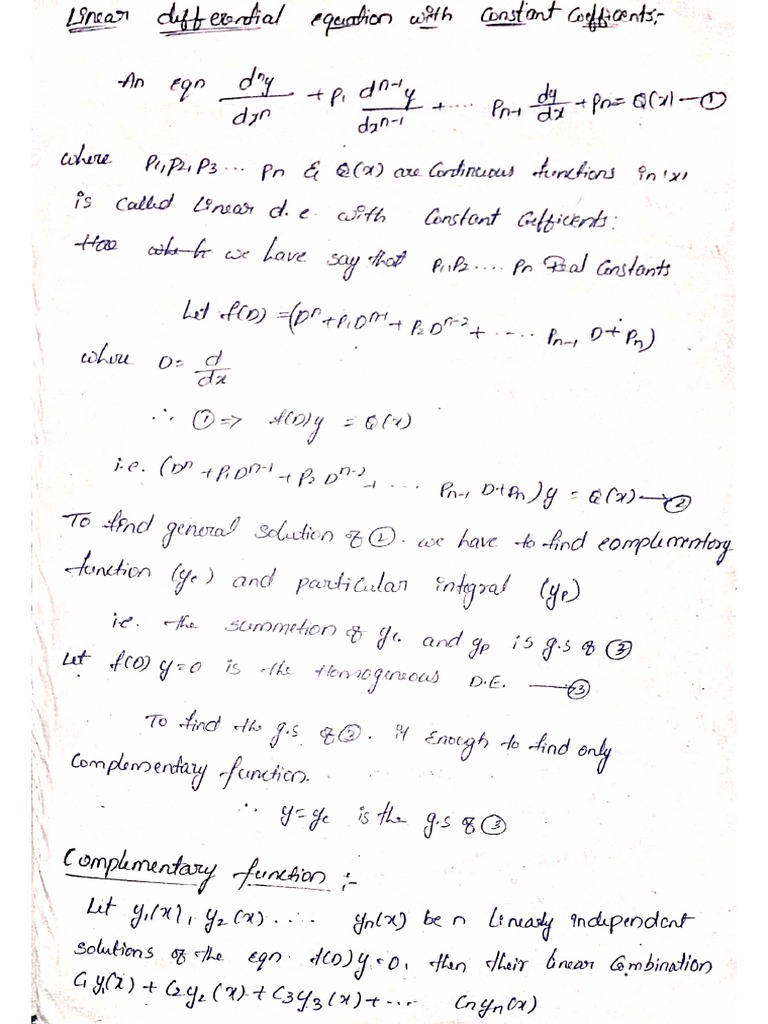 Linear differential equation with Constant Coefficents:-
An eqn dⁿy/dxⁿ + P₁ dⁿ⁻¹y/dxⁿ⁻¹ + .... Pₙ₋₁ dy/dx + Pₙ = Q(x) — ①
where P₁, P₂, P₃ ... Pₙ & Q(x) are Continuous functions in 'x'
is called Linear d.e. with Constant Coefficents:
we have say that P₁, P₂ .... Pₙ Real Constants
Let f(D) = (Dⁿ + P₁Dⁿ⁻¹ + P₂Dⁿ⁻² + ..... Pₙ₋₁ D + Pₙ)
where D = d/dx
∴ ① => f(D)y = Q(x)
i.e. (Dⁿ + P₁Dⁿ⁻¹ + P₂Dⁿ⁻² + .... Pₙ₋₁ D + Pₙ)y = Q(x) — ②
To find general solution of ②. we have to find complementory
function (yc) and particular integral (yp)
i.e. the summetion of yc and yp is g.s of ③
Let f(D)y=0 is the Homogeneous D.E. — ③
To find the g.s of ②. it enough to find only
Complementary function.
∴ y=yc is the g.s of ③
Complementary function :-
Let y₁(x), y₂(x) ..... yₙ(x) be n linearly independent
solutions of the eqn. f(D)y=0, then their linear Combination
C₁y₁(x) + C₂y₂(x) + C₃y₃(x) + ... Cₙyₙ(x)